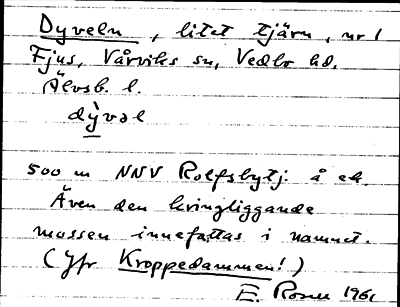 Dyveln, litet tjärn, nr 1
Fjus, Vårviks sn, Vedbo hd.
Älvsb. l.
dỳvəl
500 m NNV Rolfsbytj. å ek.
Även den kringliggande
mossen innefattas i namnet.
(Jfr Kroppedammen!)
E. Rosell 196